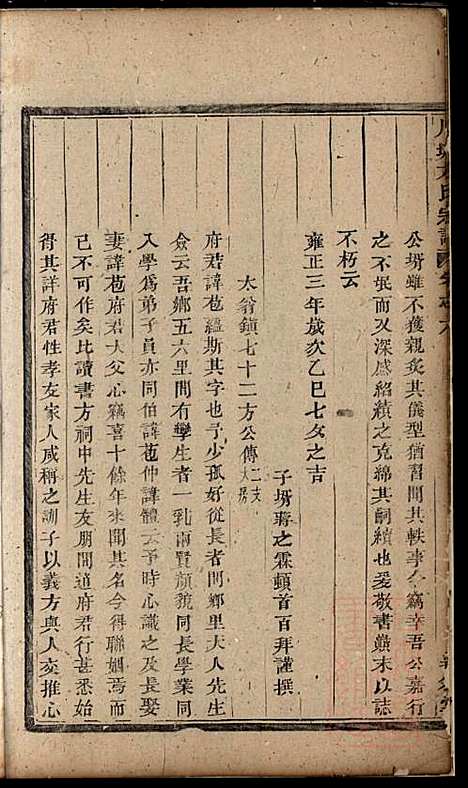 公壻雖不獲親炙其儀型猶習聞其軼事今竊幸吾公嘉行
之不泯而又深感紹績之克綿其嗣續也爰敬書顛末以誌
不朽云
雍正三年歲次乙巳七夕之吉
子壻蔣之霖頓首百拜謹撰
太翁鎮七十二方公傳二支大房
府君諱苞蘊斯其字也予少孤好從長者問鄉里大人先生
僉云吾鄉五六里間有孿生者一乳兩賢顏貌同長學業同
入學爲弟子員亦同伯諱苞仲諱體云予時心識之及長娶
妻諱苞府君大父心竊喜十餘年來聞其名今得聯姻焉而
已不可作矣比讀書方祠中先生友朋間道府君行甚悉始
得其詳府君性孝友家人咸稱之訓子以義方與人交推心